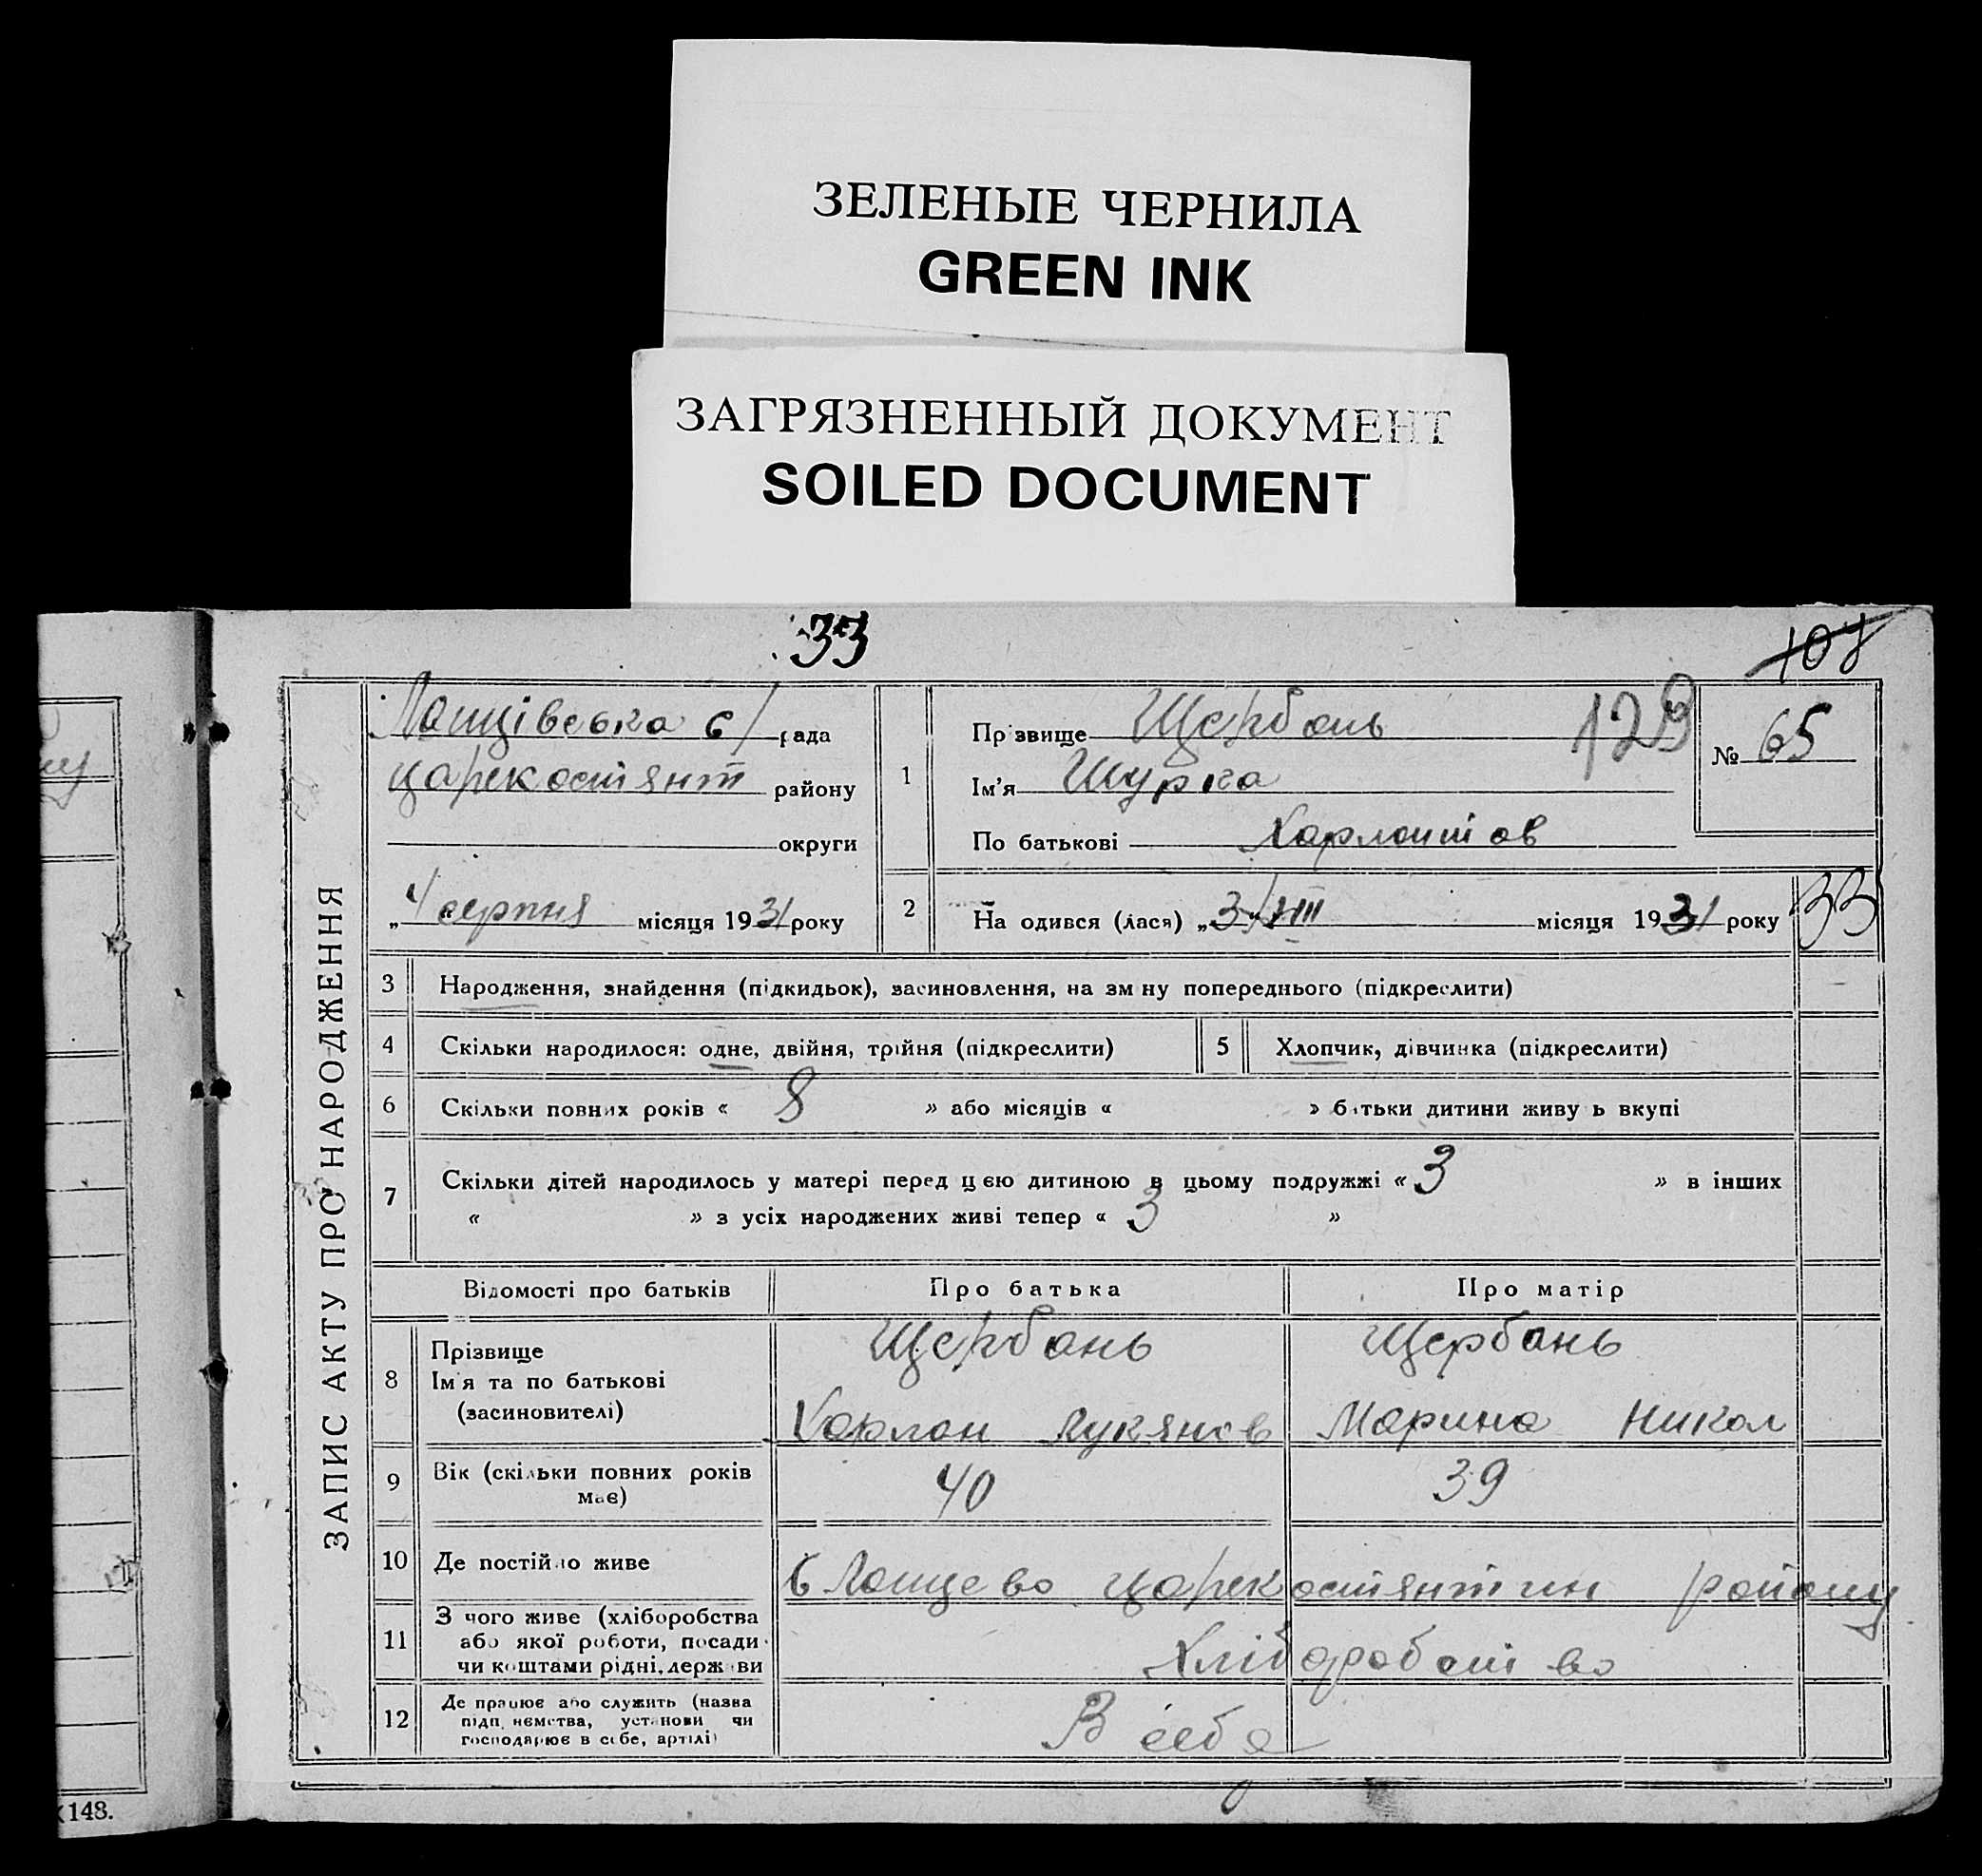 ЗЕЛЕНЫЕ ЧЕРНИЛА
GREEN INK
ЗАГРЯЗНЕННЫЙ ДОКУМЕНТ
SOILED DOCUMENT
33
107
ЗАПИС АКТУ ПРО НАРОДЖЕННЯ
Лащівська с/ рада
царекостянт району
округи
„4/ серпня місяця 1931 року
1
Прізвище Щербань
129
№ 65
Ім'я Шурка
По батькові Харлантов
2 На одився (лася) „3/VIII місяця 1931 року
33
3 Народження, знайдення (підкидьок), засиновлення, на зм ну попереднього (підкреслити)
4 Скільки народилося: одне, двійня, трійня (підкреслити) 5 Хлопчик, дівчинка (підкреслити)
6 Скільки повних років « 8 » або місяців « » батьки дитини живу ь вкупі
7 Скільки дітей народилось у матері перед цією дитиною в цьому подружжі « 3 » в інших
« » з усіх народжених живі тепер « 3 »
Відомості про батьків Про батька Про матір
8 Прізвище Щербань Щербань
Ім'я та по батькові
(засиновителі) Харлан Лукянов Марина Никол
9 Вік (скільки повних років має) 40 39
10 Де постійно живе с Лащево царекостянтин району
11 З чого живе (хліборобства
або якої роботи, посади
чи коштами рідні, держави Хліборобство
12 Де працює або служить (назва
підп иємства, установи чи
господарює в себе, артілі) В себе
148.